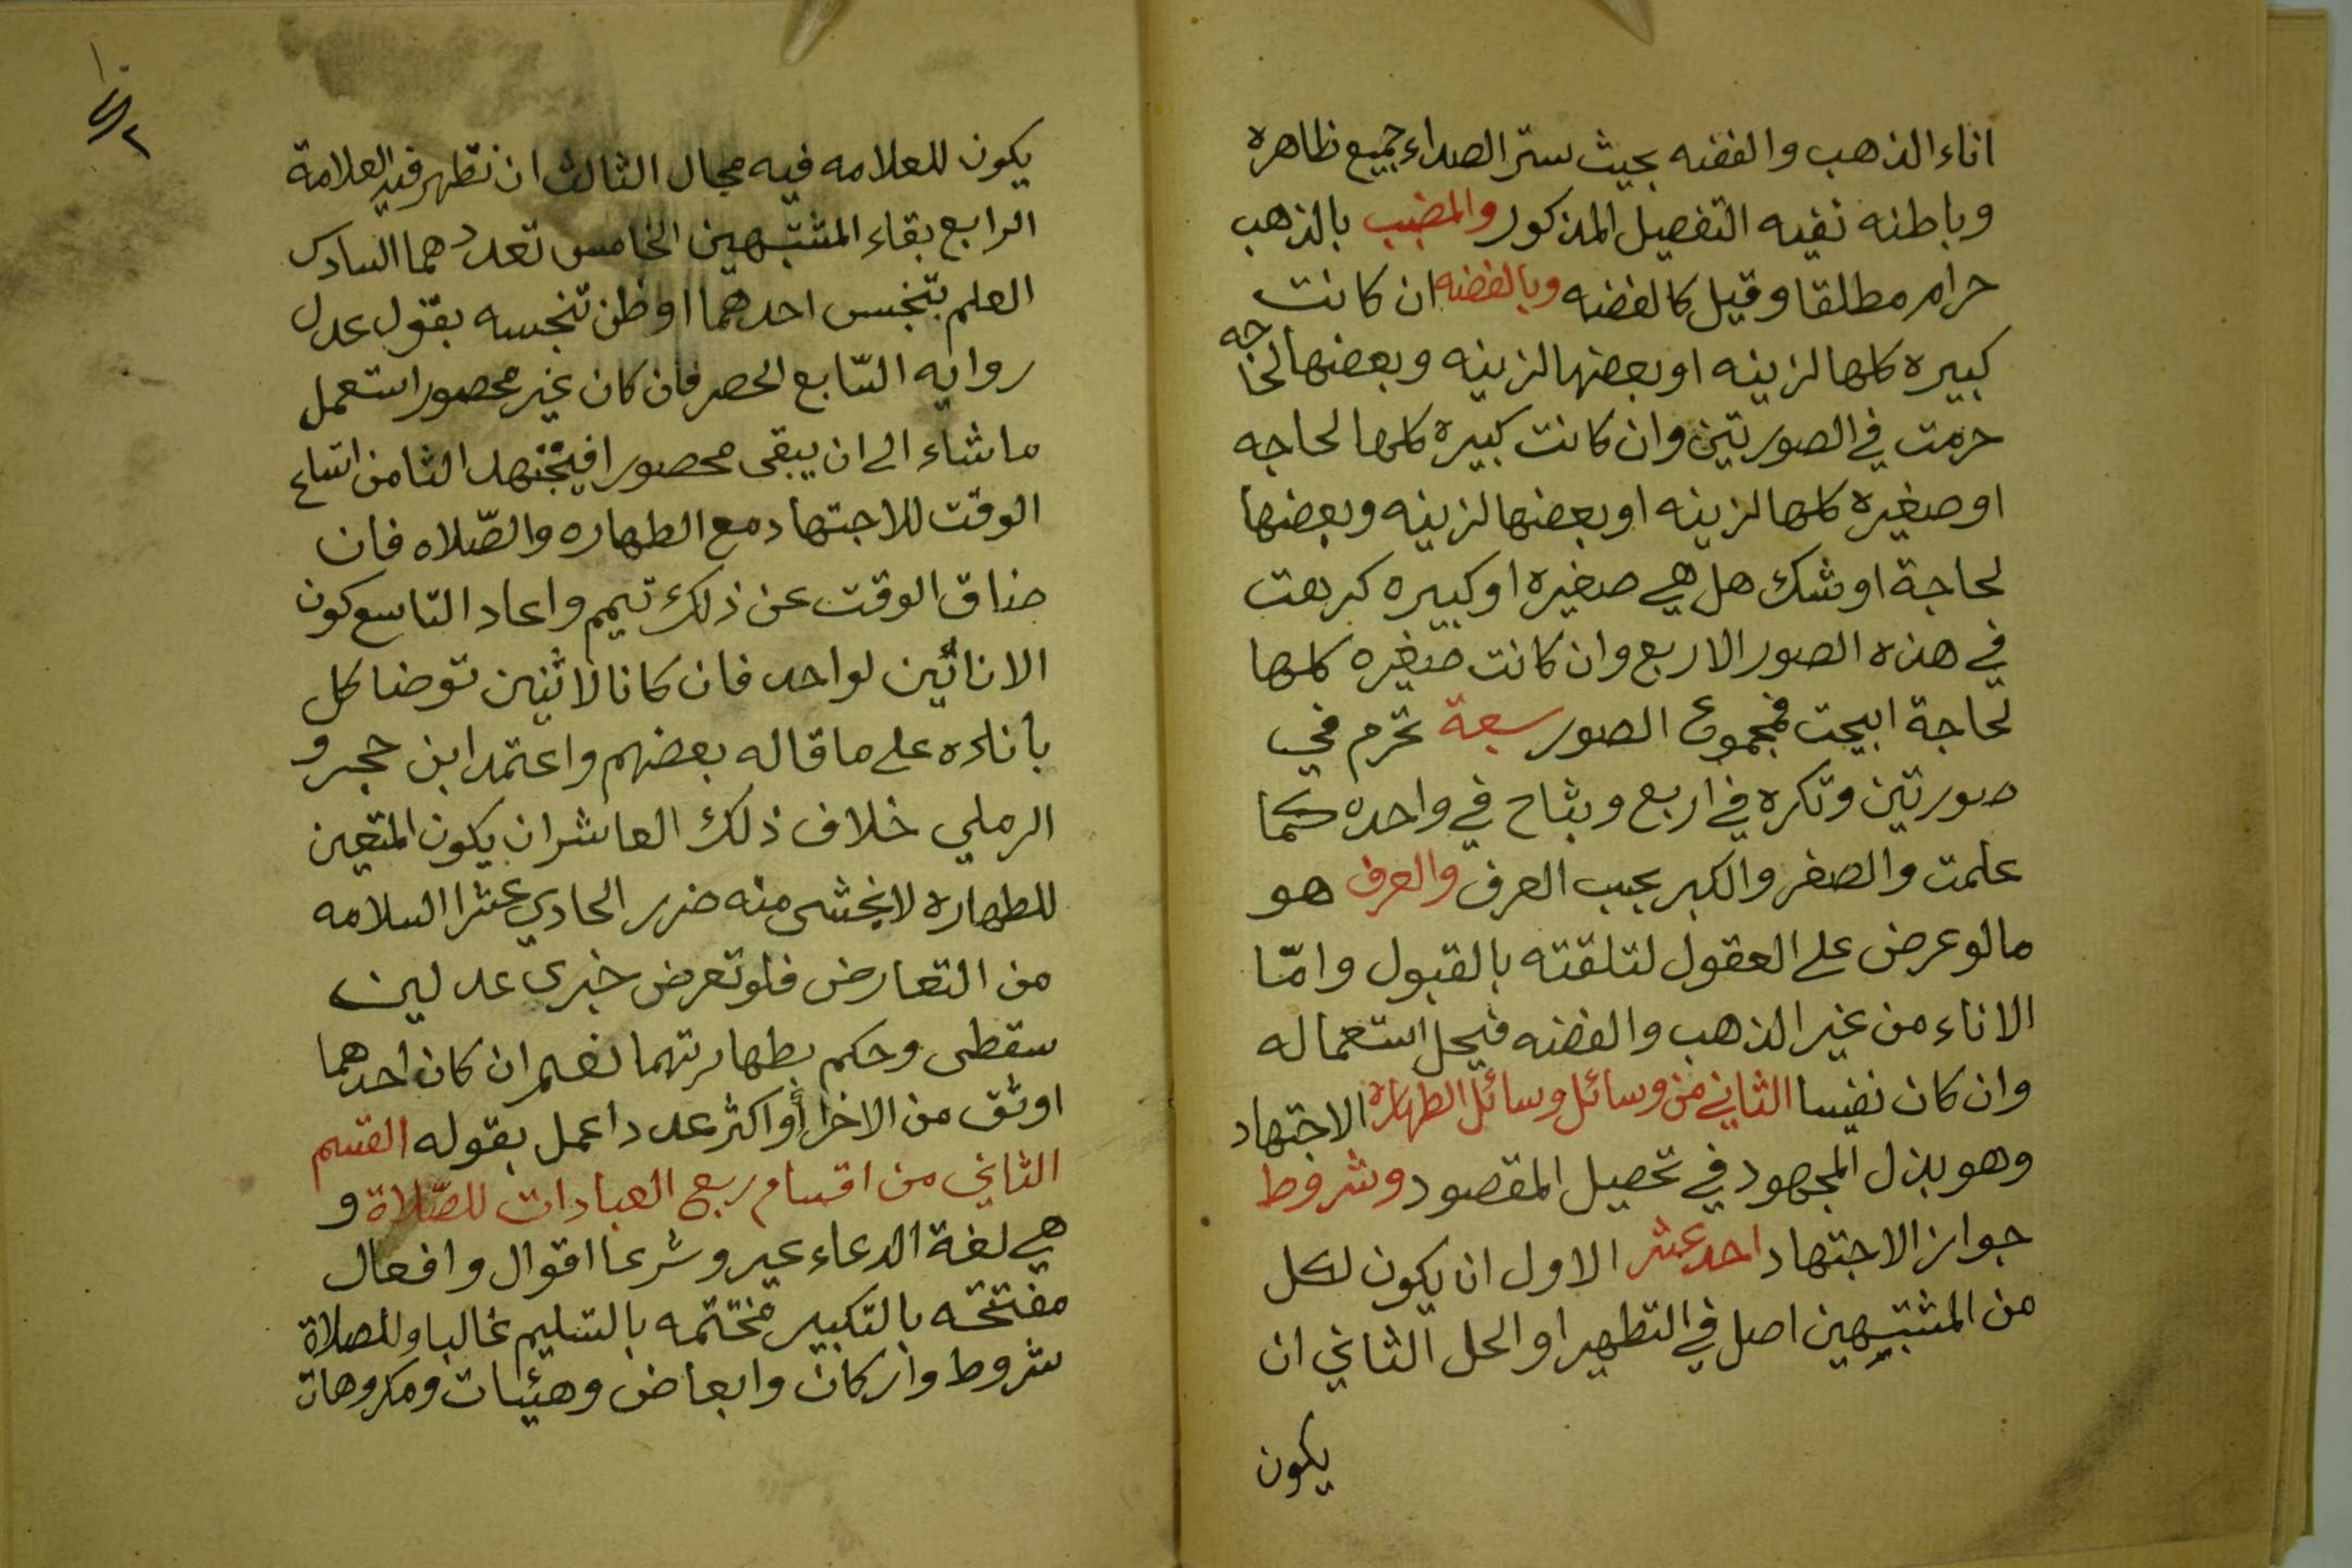 اناء الذهب والفضه بحيث ستر الصداء جميع ظاهره
وباطنه نفيه التفصيل المذكور والمضبب بالذهب
حرام مطلقا وقيل كالفضه وبالفضه ان كانت
كبيره كلها لزينه او بعضها لزينه وبعضها لحاجه
حرمت في الصورتين وان كانت كبيره كلها لحاجه
او صغيره كلها لزينه او بعضها لزينه وبعضها
لحاجة او شك هل هي صغيره او كبيره كرهت
في هذه الصور الاربع وان كانت صغيره كلها
لحاجة ابيحت فمجموع الصور سبعة تحرم في
صورتين وتكره في اربع وبتاح في واحده كما
علمت والصغر والكبر بحبب العرف والعرف هو
مالو عرض على العقول لتلقته بالقبول وامّا
الاناء من غير الذهب والفضه فيحل استعماله
وان كان نفيسا الثاني من وسائل وسائل الطهارة الاجتهاد
وهو بذل المجهود في تحصيل المقصود وشروط
جواز الاجتهاد احد عشر الاول ان يكون لكل
من المشتبهين اصل في التطهير او الحل الثاني ان
يكون
يكون للعلامه فيه مجال الثالث ان تظهر فيه العلامة
الرابع بقاء المشتبهين الخامس تعددهما السادس
العلم بتنجس احدهما او ظن تنجسه بقول عدل
روايه السّابع الحصر فان كان غير محصور استعمل
ماشاء الى ان يبقى محصورا فيجتهد الثامن اتساع
الوقت للاجتهاد مع الطهاره والصّلاه فان
ضاق الوقت عن ذلك تيمم واعاد التاسع كون
الانائين لواحد فان كانا لاثنين توضا كل
باناءه على ما قاله بعضهم واعتمد ابن حجر و
الرملي خلاف ذلك العاشر ان يكون المتعين
للطهاره لا يخشى منه ضرر الحادي عشرا السلامه
من التعارض فلو تعرض خبرى عدلين
سقطى وحكم بطهارتهما نعم ان كان احدهما
اوثق من الاخر أو اكثر عددا عمل بقوله القسم
الثاني من اقسام ربع العبادات للصّلاة و
هي لغة الدعاء عير وشرعا اقوال وافعال
مفتتحه بالتكبير مختتمه بالتسليم غالبا وللصلاة
شروط واركان وابعاض وهيئات ومكروهات